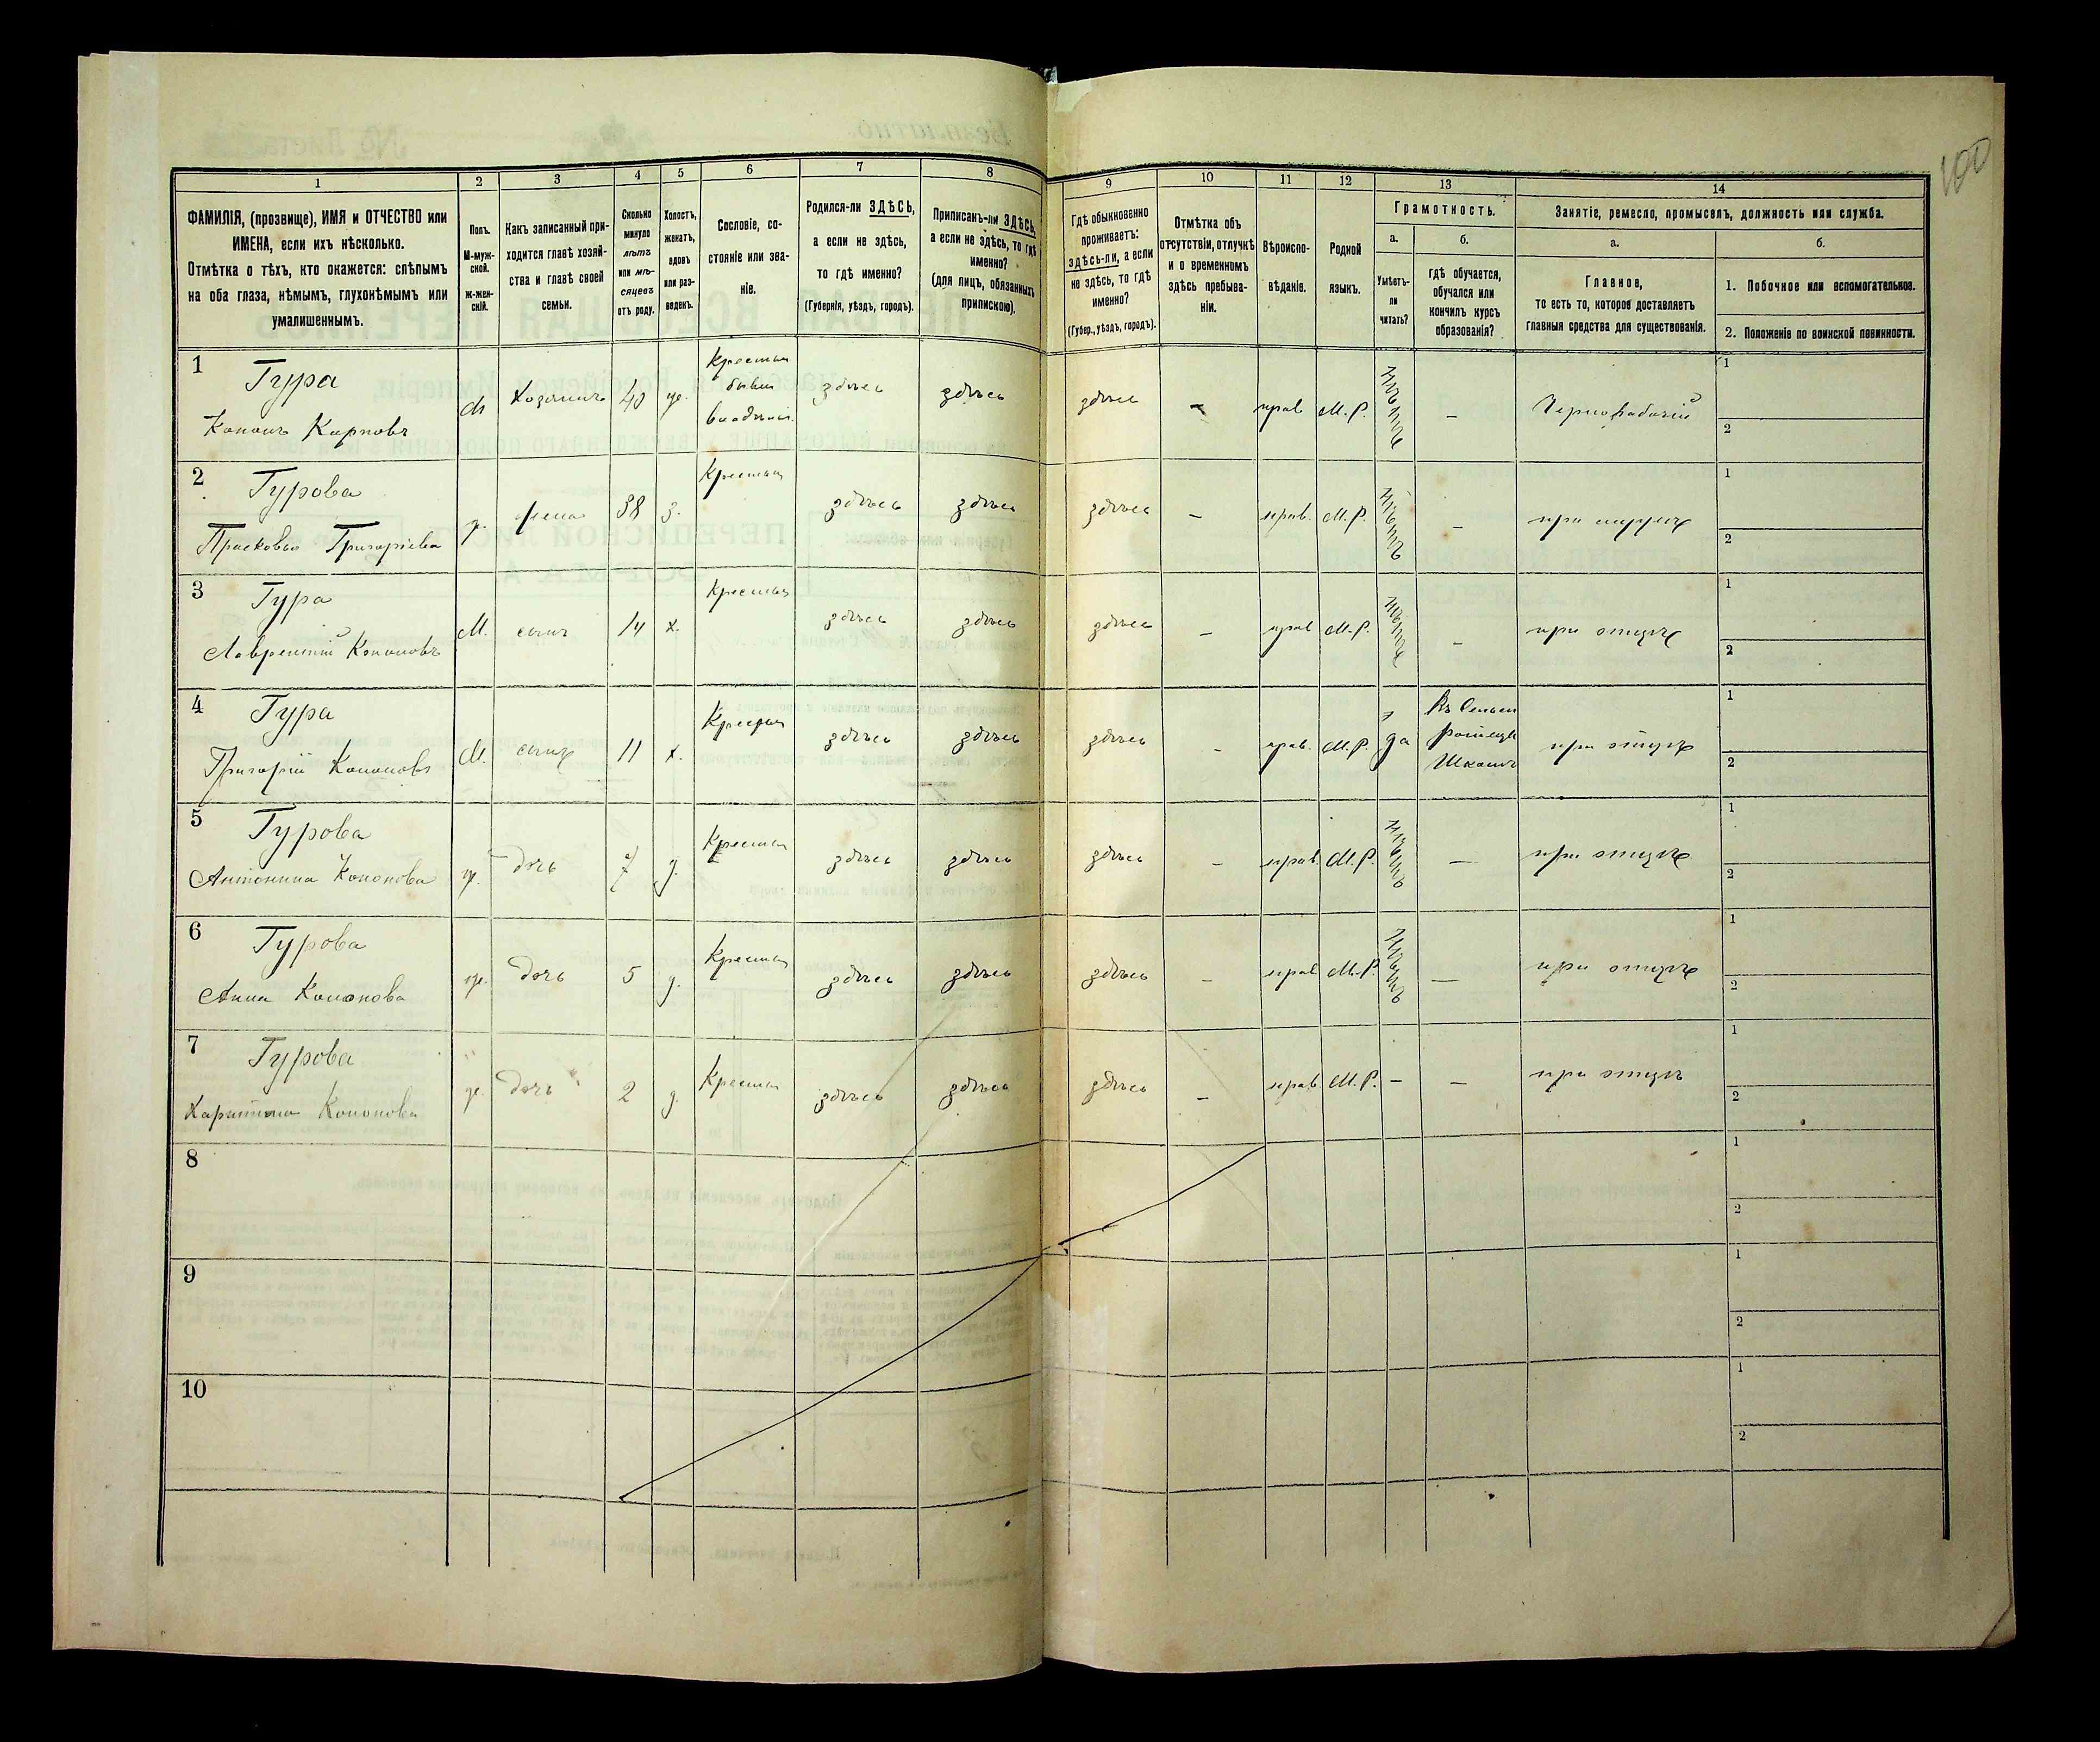 100
1 2 3 4 5 6 7 8 9 10 11 12 13 14
ФАМИЛІЯ, (прозвище), ИМЯ и ОТЧЕСТВО или
ИМЕНА, если ихъ нѣсколько.
Отмѣтка о тѣхъ, кто окажется: слѣпымъ
на оба глаза, нѣмымъ, глухонѣмымъ или
умалишеннымъ.
Полъ.
М-муж-
ской.
Ж-жен-
скій.
Какъ записанный при-
ходится главѣ хозяй-
ства и главѣ своей
семьи.
Сколько
минуло
лѣтъ
или мѣ-
сяцевъ
отъ роду.
Холостъ,
женатъ,
вдовъ
или раз-
веденъ.
Сословіе, со-
стояніе или зва-
ніе.
Родился-ли ЗДѢСЬ,
а если не здѣсь,
то гдѣ именно?
(Губернія, уѣздъ, городъ).
Приписанъ-ли ЗДѢСЬ,
а если не здѣсь, то гдѣ
именно?
(для лицъ, обязанныхъ
припискою).
Гдѣ обыкновенно
проживаетъ:
здѣсь-ли, а если
не здѣсь, то гдѣ
именно?
(Губер., уѣздъ, городъ).
Отмѣтка объ
отсутствіи, отлучкѣ
и о временномъ
здѣсь пребыва-
ніи.
Вѣроиспо-
вѣданіе.
Родной
языкъ.
Грамотность.
а.
Умѣетъ-
ли
читать?
б.
гдѣ обучается,
обучался или
кончилъ курсъ
образованія?
Занятіе, ремесло, промыселъ, должность или служба.
а.
Главное,
то есть то, которое доставляетъ
главныя средства для существованія.
б.
1. Побочное или вспомогательное.
2. Положеніе по воинской повинности.
1 Гура
Кононъ Карповъ
М Хозяинъ 40 ж.
Крестьян
бывш
владѣльч.
здѣсь здѣсь здѣсь - прав М.Р. нѣтъ - Чернорабочій
1
2
2 Гурова
Прасковья Григоріева
ж. жена 38 з. Крестьян здѣсь здѣсь здѣсь - прав. М.Р. нѣтъ - при мужѣ
1
2
3 Гура
Лаврентій Кононовъ
М. сынъ 14 х. Крестьян здѣсь здѣсь здѣсь - прав М.Р. нѣтъ - при отцѣ
1
2
4 Гура
Григорій Кононовъ
М. сынъ 11 х. Крестьян здѣсь здѣсь здѣсь - прав. М.Р. да
Въ
Школѣ
при отцѣ
1
2
5 Гурова
Антонина Кононова
ж. дочь 7 д. Крестьян здѣсь здѣсь здѣсь - прав. М.Р. нѣтъ - при отцѣ
1
2
6 Гурова
Анна Кононова
ж. дочь 5 д. Крестьян здѣсь здѣсь здѣсь - прав М.Р. нѣтъ - при отцѣ
1
2
7 Гурова
Харитина Кононова
ж. дочь 2 д. Крестьян здѣсь здѣсь здѣсь - прав. М.Р. - - при отцѣ
1
2
8
1
2
9
1
2
10
1
2